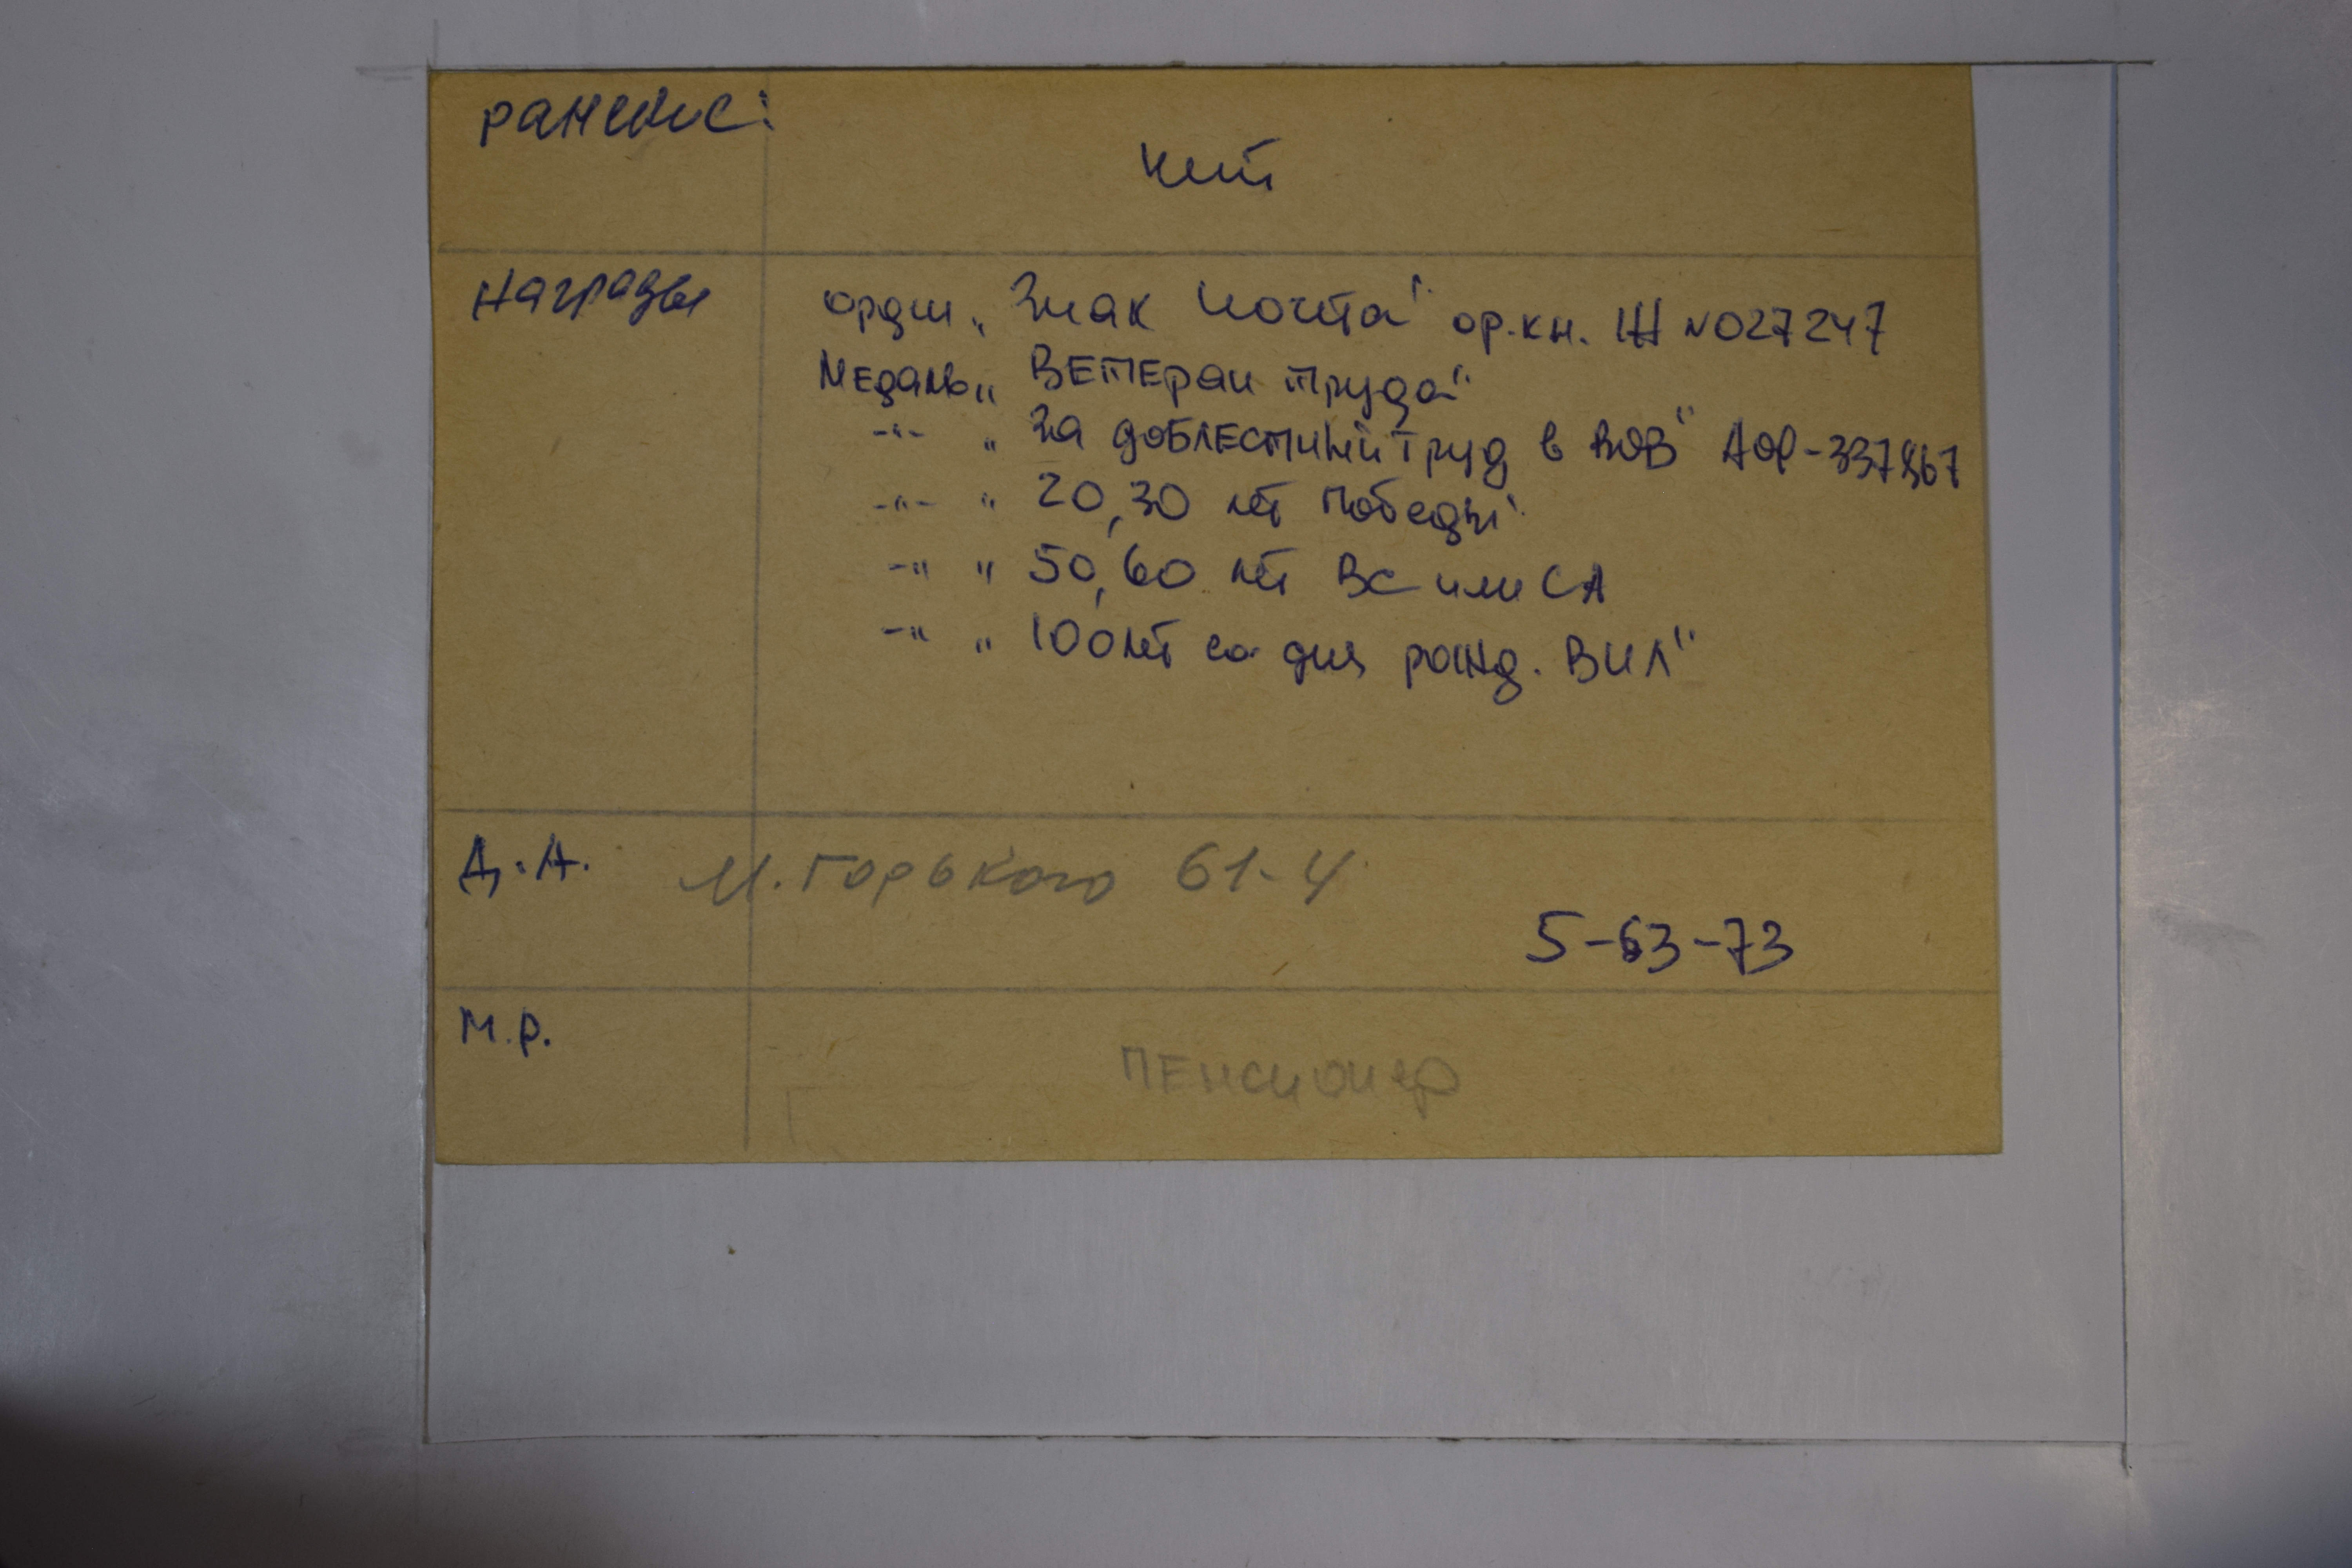 Ранение:
нет
Награды
орден „Знак почета" ор.кн. Ж №027247
Медаль „Ветеран труда"
-"- „За доблестный труд в ВОВ"
-"- „20,30 лет победы"
-" „50,60 лет ВС или СА
-" „100 лет со дня рожд. ВИЛ"
Д.А. М.Горького 61-4
5-63-73
М.Р.
пенсионер